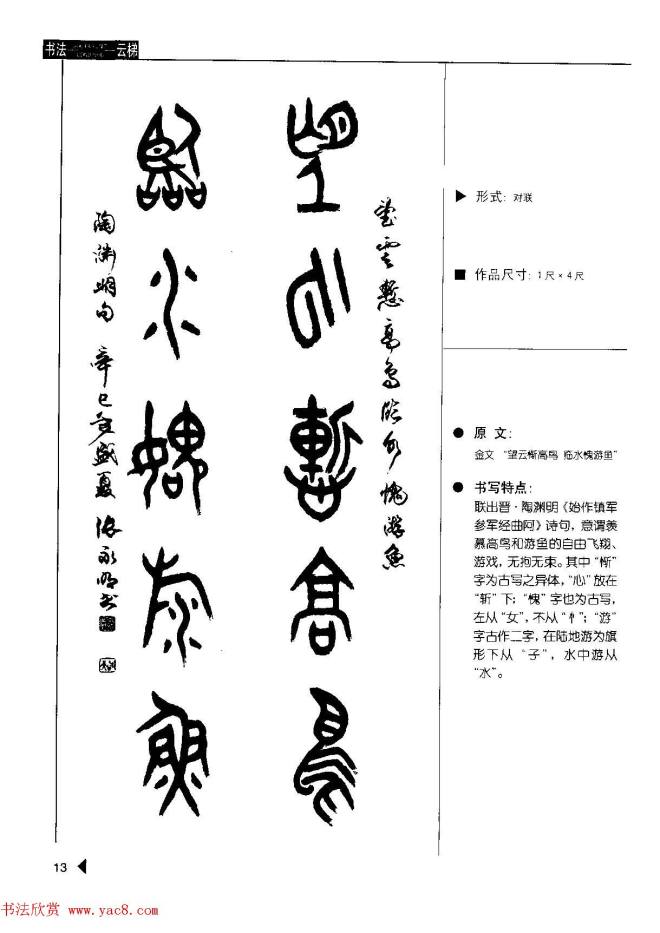 书法
云梯
望云慙高鸟
临水愧游鱼
望云慙高鸟临水愧游鱼
陶渊明句 辛巳年盛夏 张永明书
▶ 形式: 对联
■ 作品尺寸: 1尺×4尺
● 原 文:
金文 “望云惭高鸟 临水愧游鱼”
● 书写特点:
联出晋·陶渊明《始作镇军
参军经曲阿》诗句, 意谓羡
慕高鸟和游鱼的自由飞翔、
游戏, 无拘无束。其中“惭”
字为古写之异体, “心”放在
“斩”下; “愧”字也为古写,
左从“女”, 不从“忄”; “游”
字古作二字, 在陆地游为旗
形下从“子”, 水中游从
“水”。
13
书法欣赏 www.yac8.com